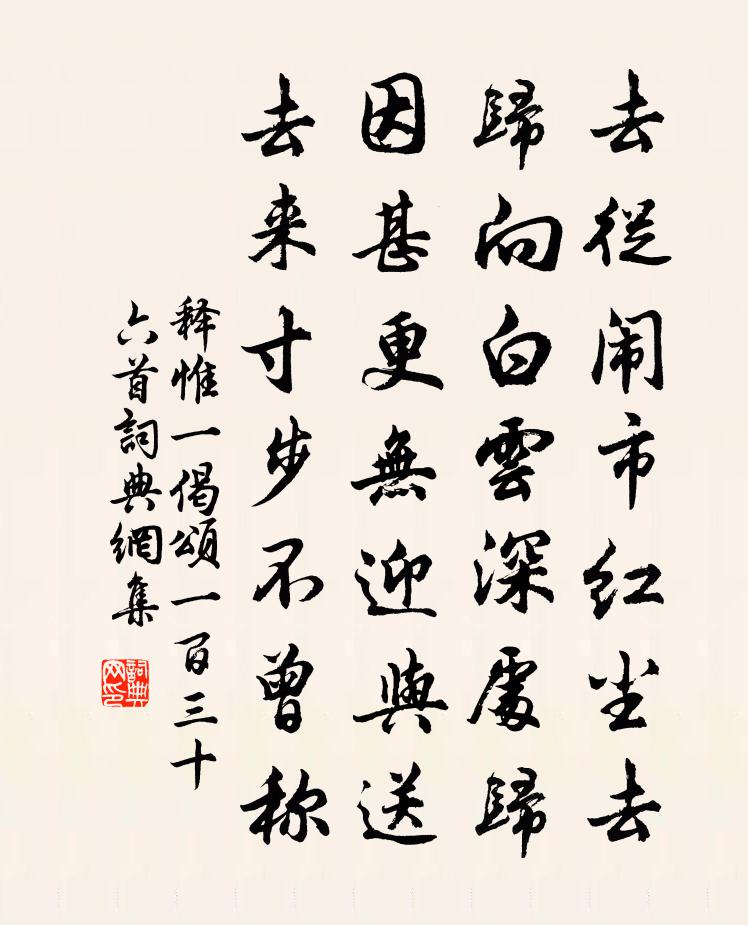 去從闹市红尘去
歸向白雲深處歸
因甚更無迎與送
去来寸步不曾称
释惟一偈頌一百三十
六首詞典網集
詞典
网印